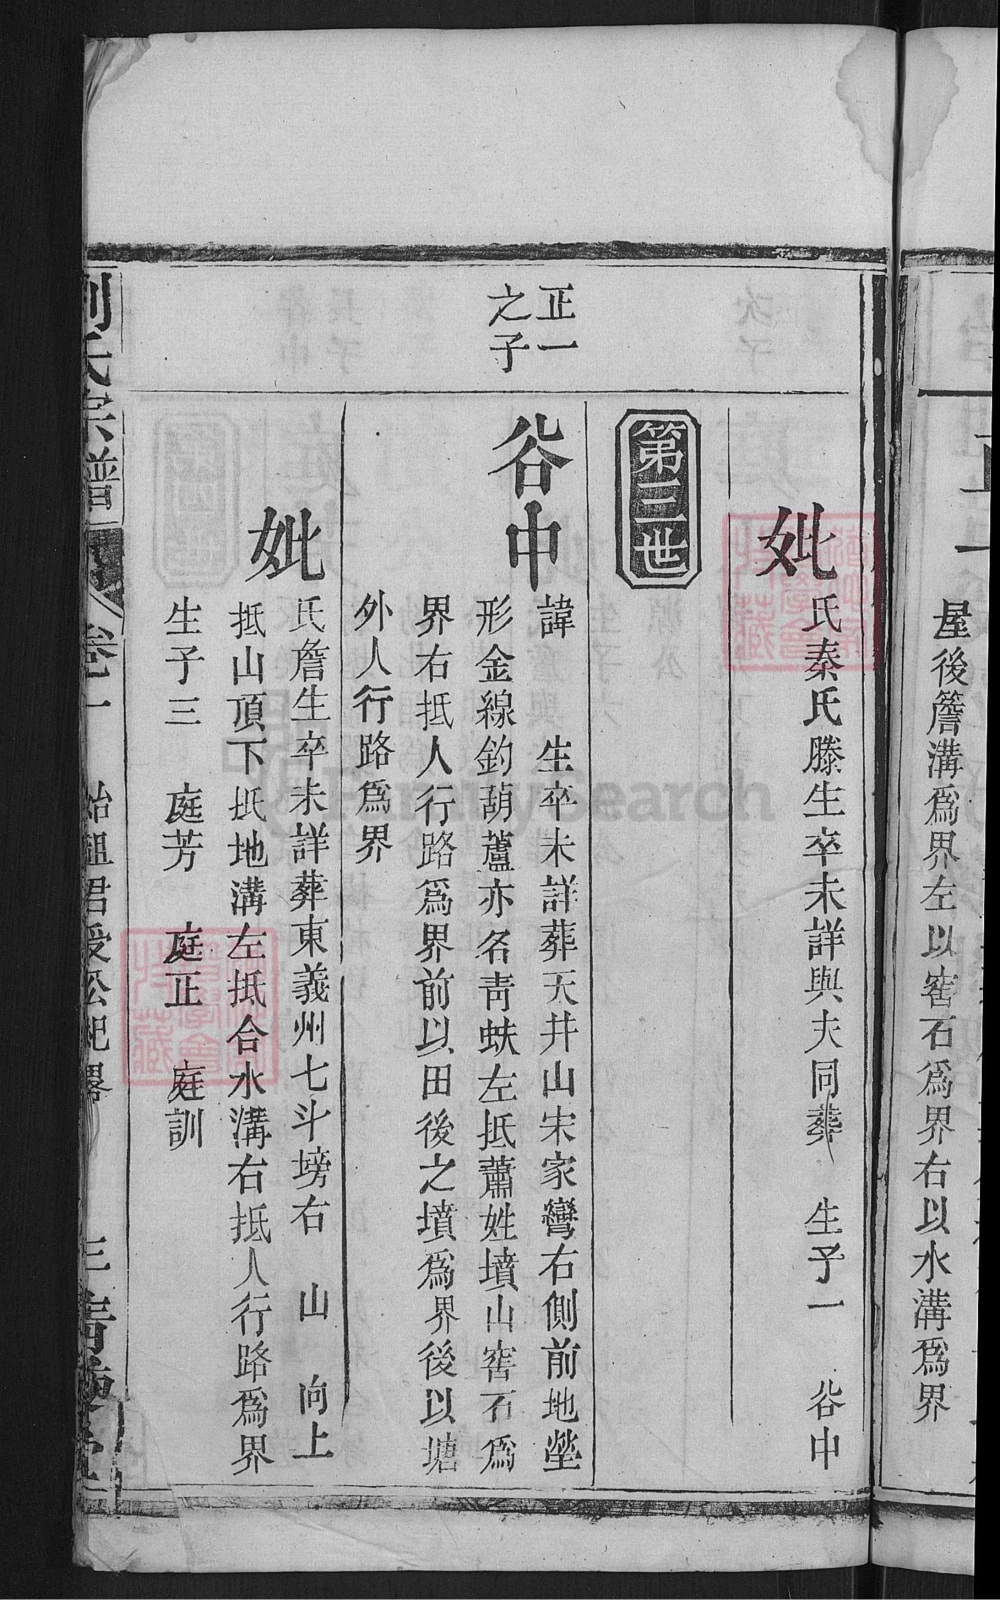 屋後簷溝爲界左以窖石爲界右以水溝爲界
妣
氏秦氏滕生卒未詳與夫同葬 生子一 谷中
第三世
正一
之子
谷中
諱 生卒未詳葬天井山宋家彎右側前地塋
形金線釣葫蘆亦名青蚨左抵蕭姓墳山窖石爲
界右抵人行路爲界前以田後之墳爲界後以塘
外人行路爲界
妣
氏詹生卒未詳葬東義州七斗塝右 山 向上
抵山頂下抵地溝左抵合水溝右抵人行路爲界
生子三 庭芳 庭正 庭訓
劉氏宗譜
卷一 始祖君受公紀畧
三
FamilySearch